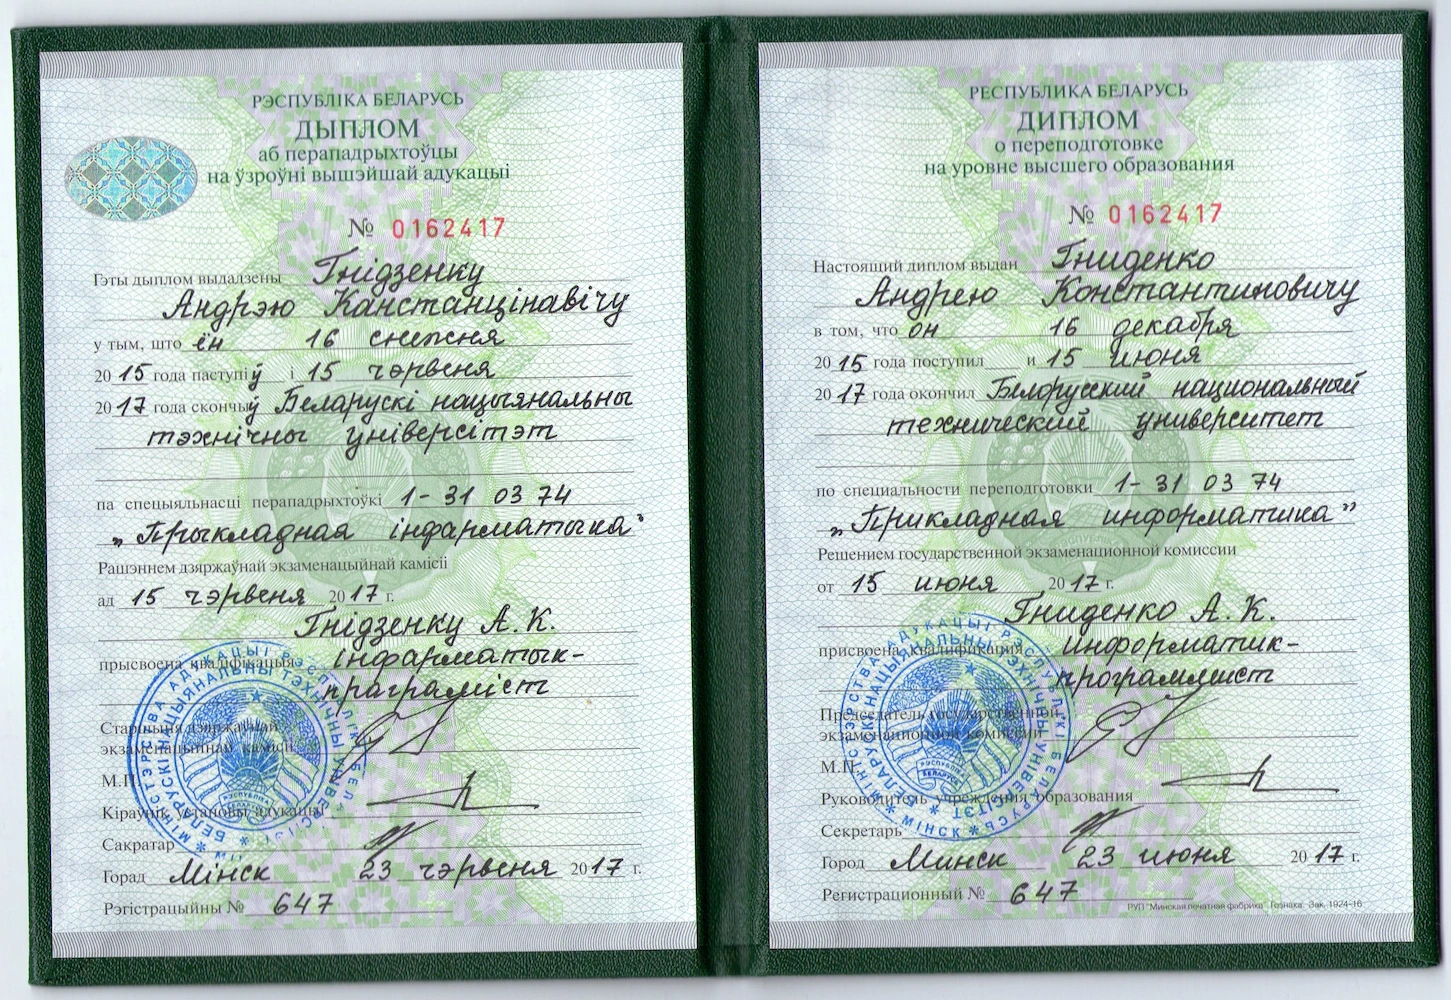 РЭСПУБЛІКА БЕЛАРУСЬ
ДЫПЛОМ
аб перападрыхтоўцы
на ўзроўні вышэйшай адукацыі
№ 0162417
Гэты дыплом выдадзены Гнідзенку
Андрэю Канстанцінавічу
у тым, што ён 16 снежня
2015 года паступіў і 15 чэрвеня
2017 года скончыў Беларускі нацыянальны
тэхнічны ўніверсітэт
па спецыяльнасці перападрыхтоўкі 1-31 03 74
„Прыкладная інфарматыка"
Рашэннем дзяржаўнай экзаменацыйнай камісіі
ад 15 чэрвеня 2017 г.
Гнідзенку А. К.
прысвоена кваліфікацыя інфарматык-
праграміст
Старшыня дзяржаўнай
экзаменацыйнай камісіі
М.П.
Кіраўнік установы адукацыі
Сакратар
Горад Мінск 23 чэрвеня 2017 г.
Рэгістрацыйны № 647
МІНІСТЭРСТВА АДУКАЦЫІ РЭСПУБЛІКІ БЕЛАРУСЬ
БЕЛАРУСКІ НАЦЫЯНАЛЬНЫ ТЭХНІЧНЫ УНІВЕРСІТЭТ
РЭСПУБЛІКА
БЕЛАРУСЬ
РЕСПУБЛИКА БЕЛАРУСЬ
ДИПЛОМ
о переподготовке
на уровне высшего образования
№ 0162417
Настоящий диплом выдан Гниденко
Андрею Константиновичу
в том, что он 16 декабря
2015 года поступил и 15 июня
2017 года окончил Белорусский национальный
технический университет
по специальности переподготовки 1-31 03 74
„Прикладная информатика"
Решением государственной экзаменационной комиссии
от 15 июня 2017 г.
Гниденко А. К.
присвоена квалификация информатик-
программист
Председатель государственной
экзаменационной комиссии
М.П.
Руководитель учреждения образования
Секретарь
Город Минск 23 июня 2017 г.
Регистрационный № 647
РУП "Минская печатная фабрика" Гознака. Зак. 1924-16
МІНІСТЭРСТВА АДУКАЦЫІ РЭСПУБЛІКІ БЕЛАРУСЬ
БЕЛАРУСКІ НАЦЫЯНАЛЬНЫ ТЭХНІЧНЫ УНІВЕРСІТЭТ
* МІНСК *
РЭСПУБЛІКА
БЕЛАРУСЬ